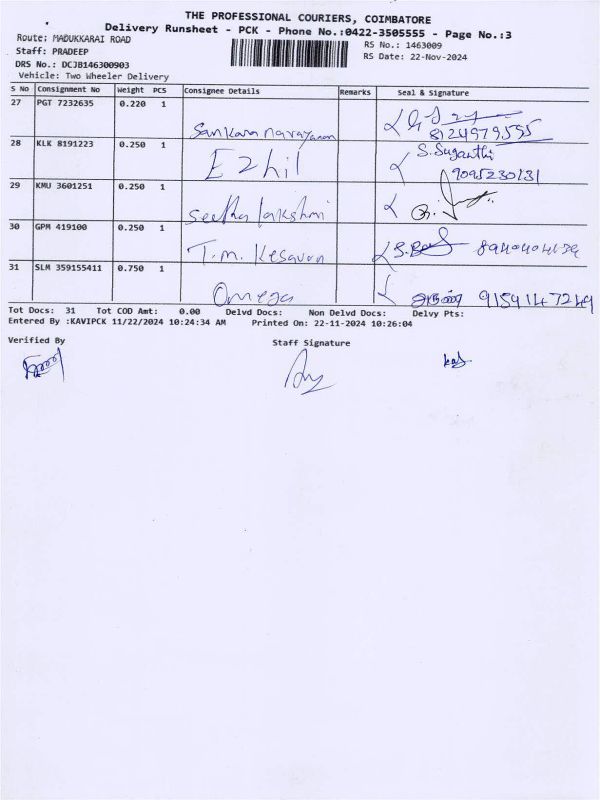 THE PROFESSIONAL COURIERS, COIMBATORE
Delivery Runsheet - PCK - Phone No.:0422-3505555 - Page No.:3
Route: MADUKKARAI ROAD
RS No.: 1463009
Staff: PRADEEP
RS Date: 22-Nov-2024
DRS No.: DCJB146300903
Vehicle: Two Wheeler Delivery
S No Consignment No Weight PCS Consignee Details Remarks Seal & Signature
27 PGT 7232635 0.220 1 Sankara narayanan 8124979595
28 KLK 8191223 0.250 1 Ezhil S. Suganthi 9095230131
29 KMU 3601251 0.250 1 Seetha lakshmi
30 GPM 419100 0.250 1 T.m. Kesavan
31 SLM 359155411 0.750 1 Omega 9159147249
Tot Docs: 31 Tot COD Amt: 0.00 Delvd Docs: Non Delvd Docs: Delvy Pts:
Entered By :KAVIPCK 11/22/2024 10:24:34 AM Printed On: 22-11-2024 10:26:04
Verified By Staff Signature